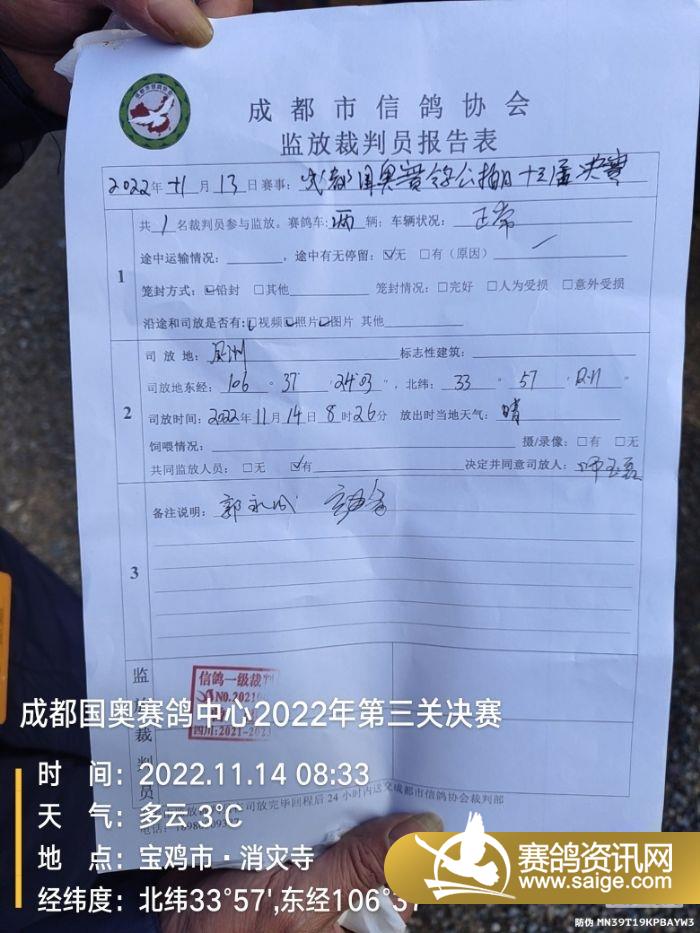 成都市信鸽协会
监放裁判员报告表
2022年十一月13日赛事：成都国奥赛鸽公棚 届决赛
共1名裁判员参与监放。赛鸽车：两辆；车辆状况：正常
途中运输情况： ，途中有无停留：☑无 □有（原因）
1
笼封方式：☑铅封 □其他 笼封情况：□完好 □人为受损 □意外受损
沿途和司放是否有：☑视频☑照片☑图片 其他
司放地：凤州 标志性建筑：
司放地东经：106°37′24.03″，北纬：33°57′12.11″
2
司放时间：2022年11月14日8时26分 放出时当地天气：晴
饲喂情况： 摄/录像：□有 □无
共同监放人员：□无 ☑有 决定并同意司放人：
备注说明：郭永成
3
监放裁判员
信鸽一级裁判
NO.2021
四川：2021-2023
司放完毕回程后24小时内送交成都市信鸽协会裁判部
电话：
成都国奥赛鸽中心2022年第三关决赛
时 间：2022.11.14 08:33
天 气：多云 3℃
地 点：宝鸡市·消灾寺
经纬度：北纬33°57′,东经106°37′
赛鸽资讯网
www.saige.com
防伪 MN39T19KPBAYW3